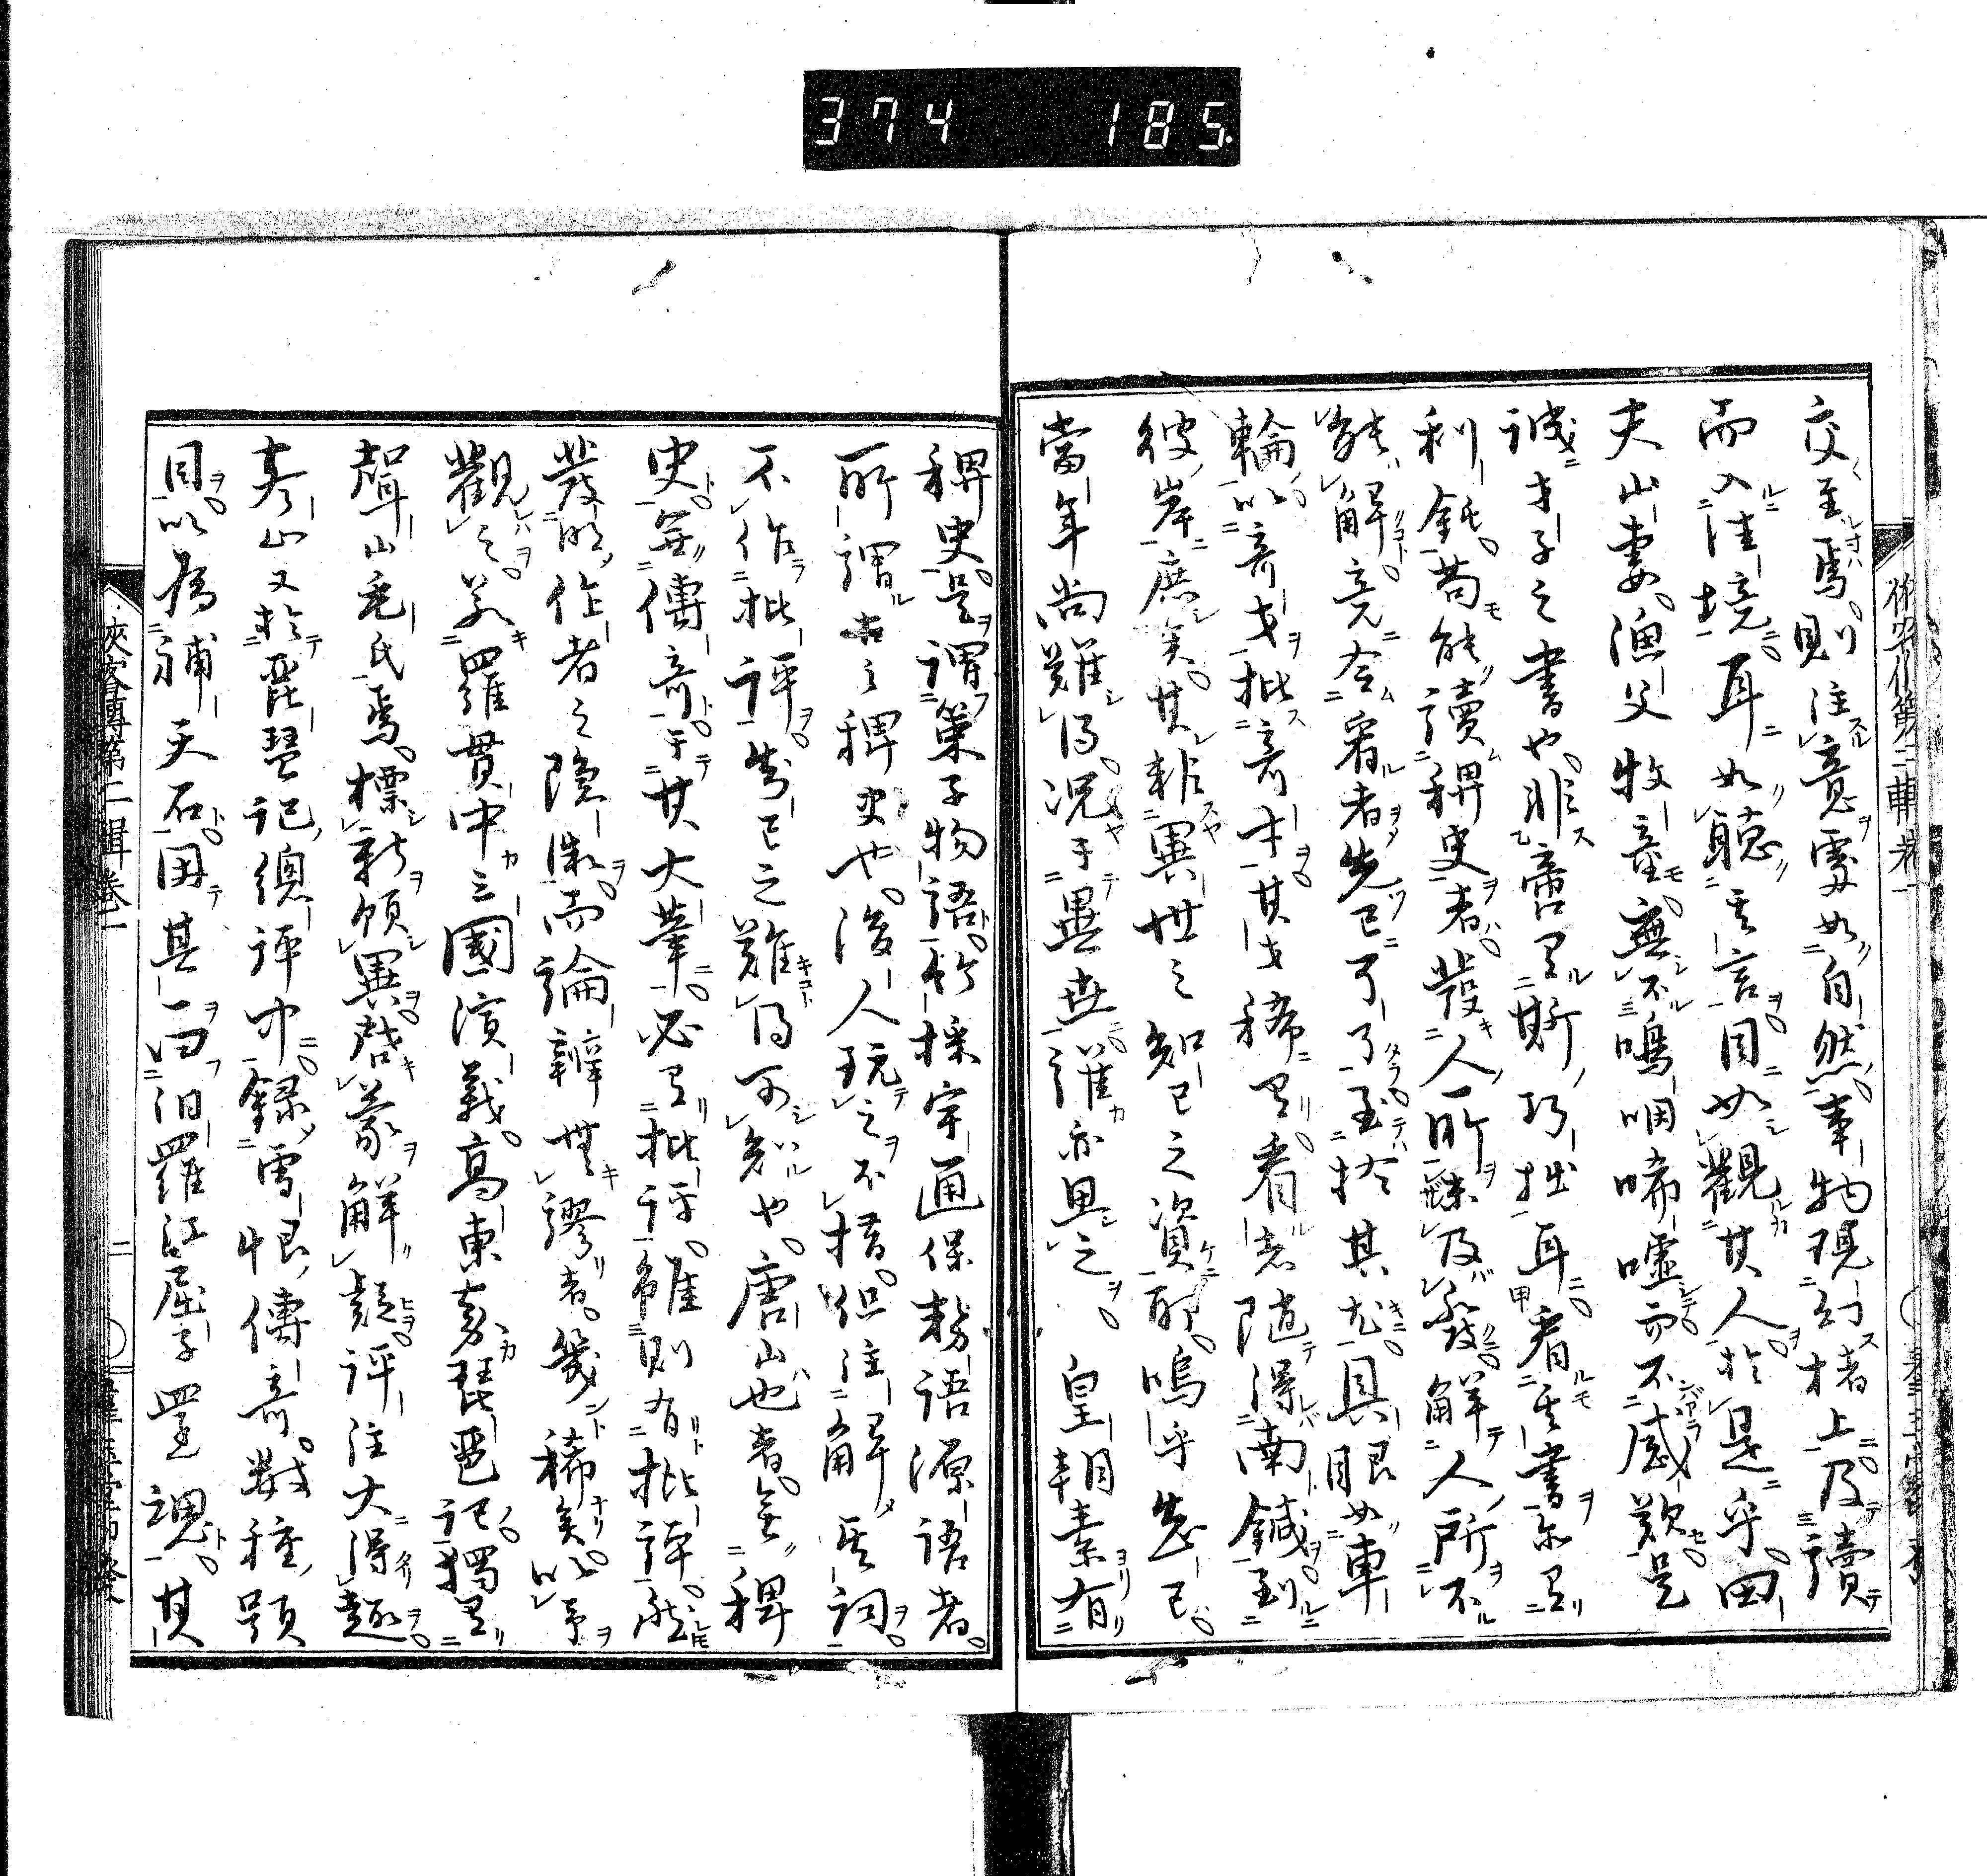 374 185
交至焉。則注意處如自然。事物現幻者上。及讀
而入佳境。耳如聽其言。目如觀其人。於是乎。田
夫山妻。漁父牧童。無不嗚咽唏噓而不感歎。是
誠才子之書也。非啻有斯巧拙耳。看其書亦有
利鈍。苟能讀稗史者。發人所未及發。解人所不
能解。竟令看者先已了了。至於其尤具眼如車
輪。以奇才批奇才。其才稀有。看者隨得南鍼到
彼岸。庶矣。其非異世之知己之資耶。嗚乎知己。
當年尚難得。況于異世。誰亦思之。 皇朝素有
稗史。是謂菓子物語。竹採宇通保勢語源語者。
所謂古之稗史也。後人玩之不措。但註解其詞。
不作批評。知己之難得可知也。唐山也者。無稗
史。無傳奇。于其大筆。必有批評。雖則有批評。能
發明作者之隱微。而論辯無謬者。幾稀矣。以予
觀之。若羅貫中三國演義。高東嘉琵琶記。獨有
聲山毛氏焉。標新領異。啓蒙解頤。評注大得趣。
聲山又於琵琶記總評中。錄雪恨傳奇。數種題
目。以爲補天石。因其一曰汨羅江屈子還魂。其
俠客傳第二輯卷一
二